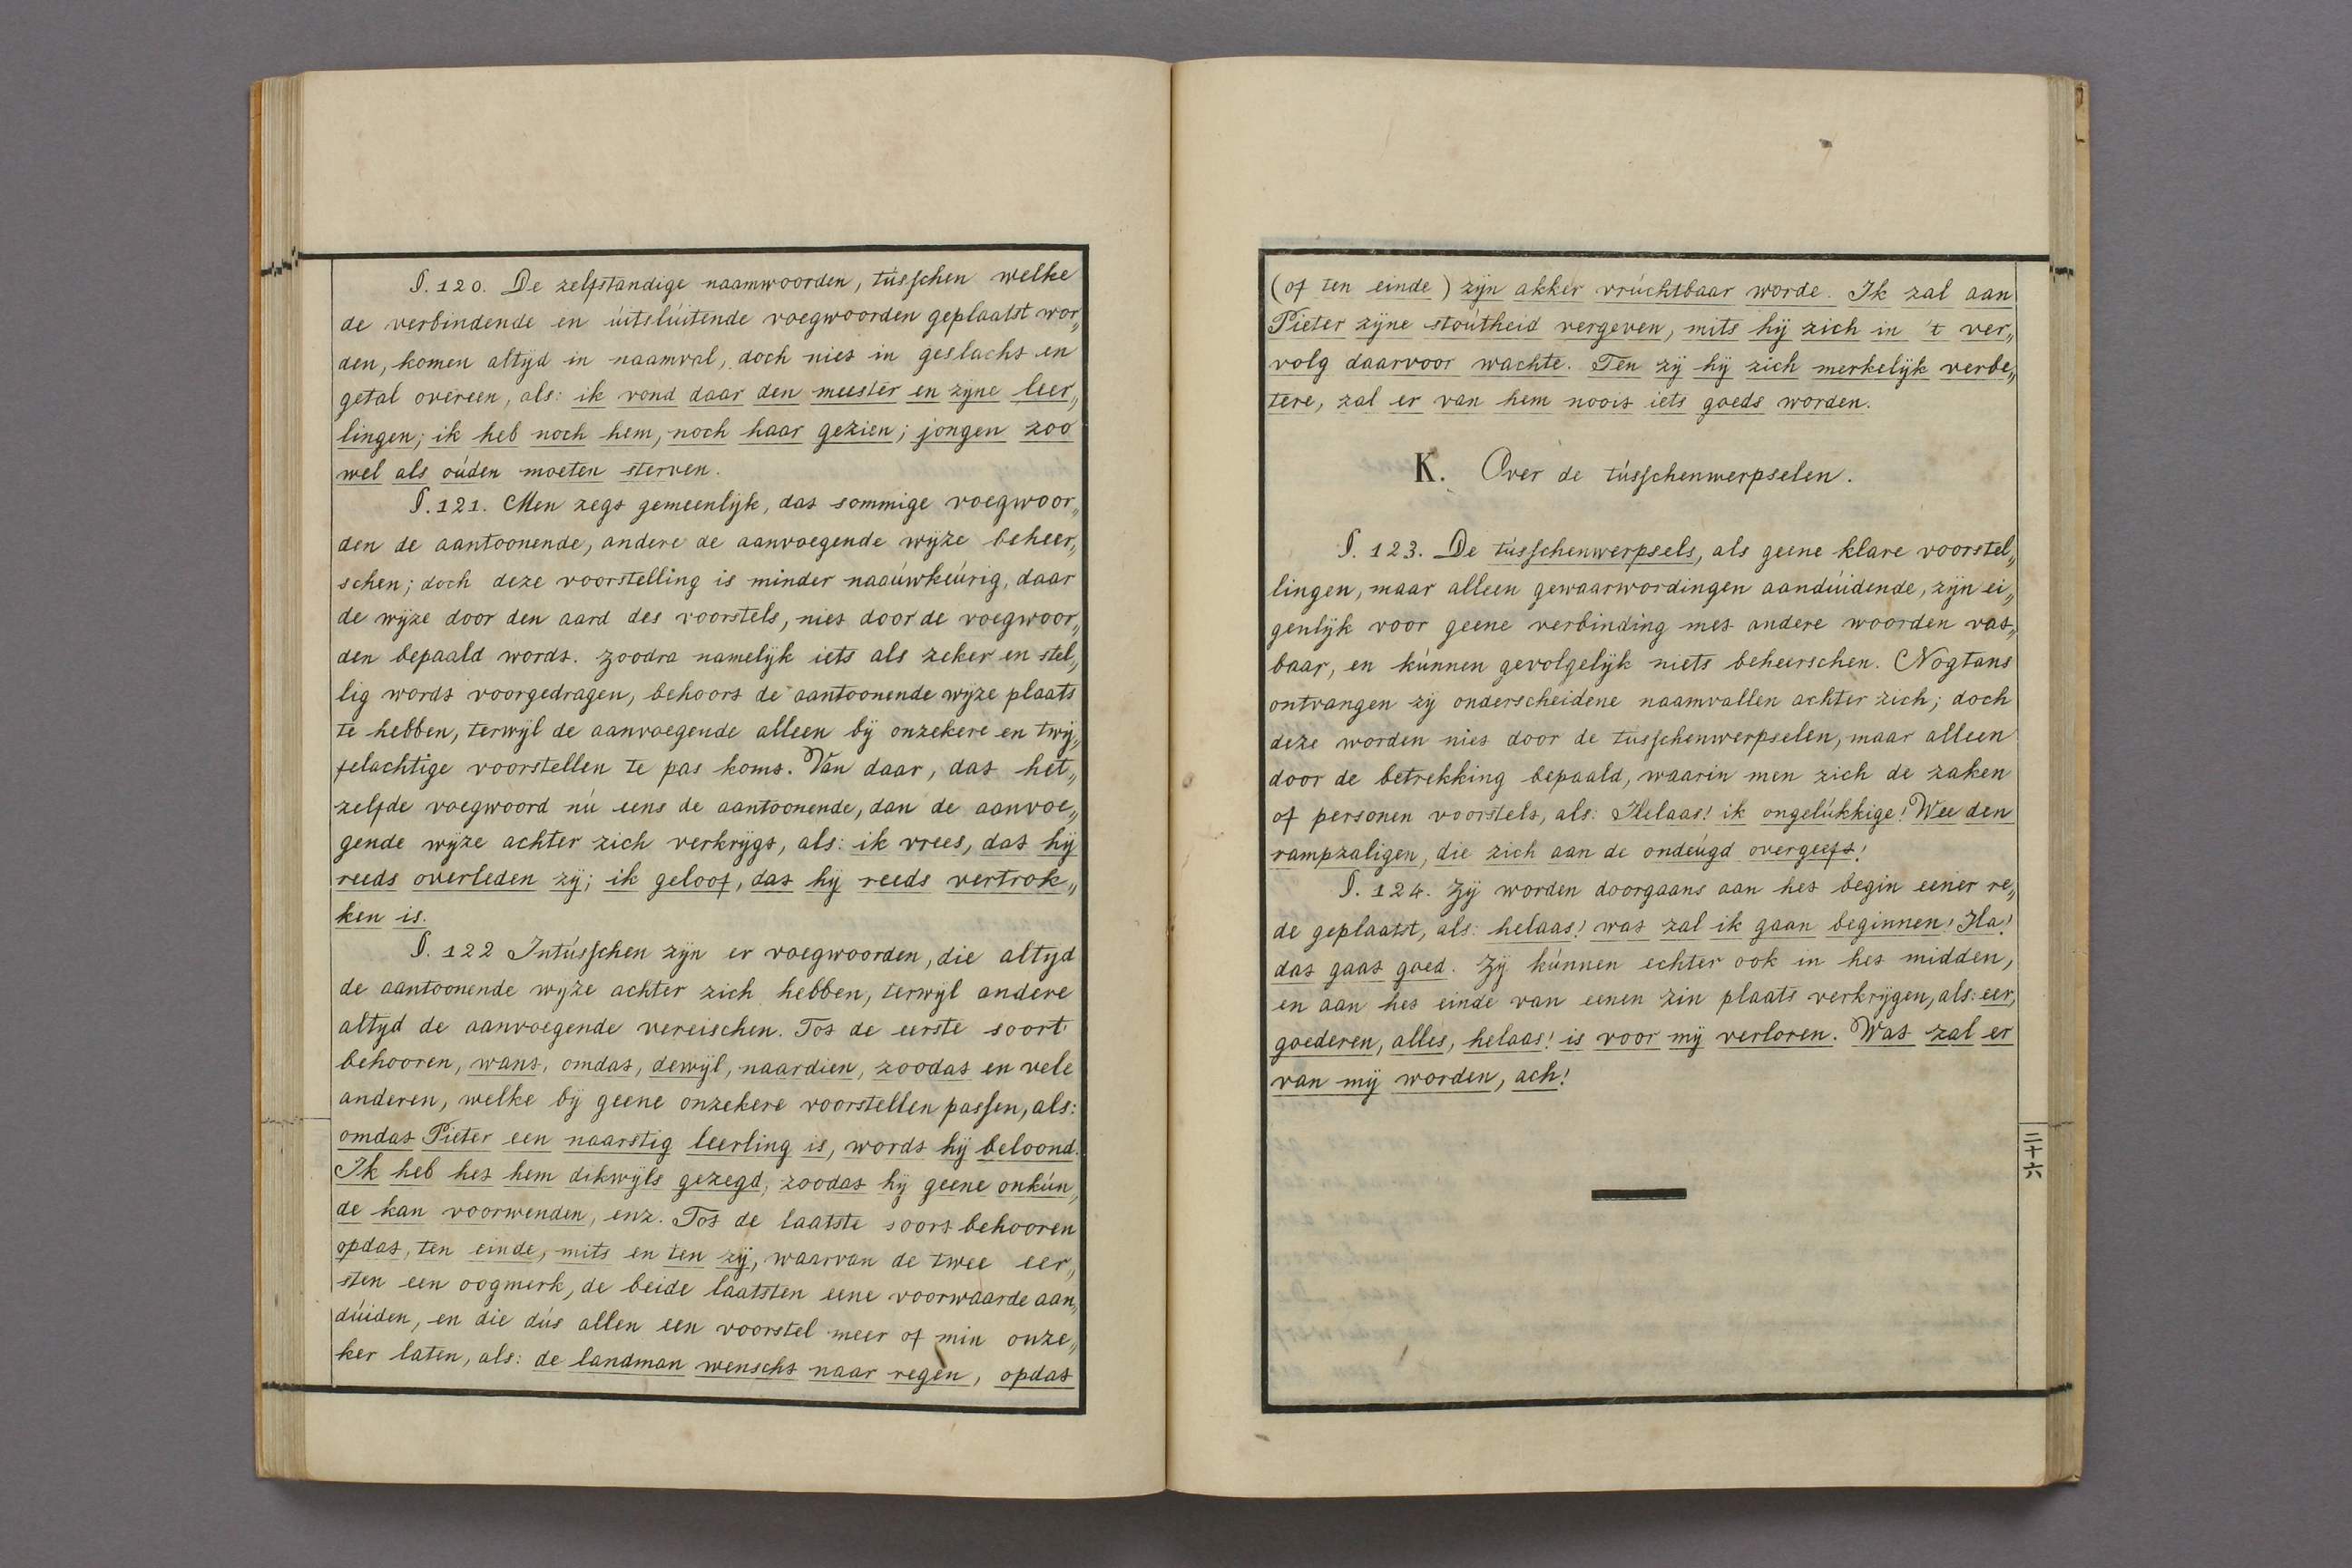 §. 120. De zelfstandige naamwoorden, tússchen welke
de verbindende en úitslúitende voegwoorden geplaatst wor„
den, komen altijd in naamval, doch niet in geslacht en
getal overeen, als: ik vond daar den meester en zijne leer„
lingen; ik heb noch hem, noch haar gezien; jongen zoo
wel als oúden moeten sterven.
§. 121. Men zegt gemeenlijk, dat sommige voegwoor„
den de aantoonende, andere de aanvoegende wijze beheer„
schen; doch deze voorstelling is minder naaúwkeúrig, daar
de wijze door den aard des voorstels, niet door de voegwoor„
den bepaald wordt. Zoodra namelijk iets als zeker en stel„
lig wordt voorgedragen, behoort de aantoonende wijze plaats
te hebben, terwijl de aanvoegende alleen bij onzekere en twij„
felachtige voorstellen te pas komt. Van daar, dat het„
zelfde voegwoord nú eens de aantoonende, dan de aanvoe„
gende wijze achter zich verkrijgt, als: ik vrees, dat hij
reeds overleden zij; ik geloof, dat hij reeds vertrok„
ken is.
§. 122 Intússchen zijn er voegwoorden, die altijd
de aantoonende wijze achter zich hebben, terwijl andere
altijd de aanvoegende vereischen. Tot de eerste soort
behooren, want, omdat, dewijl, naardien, zoodat en vele
anderen, welke bij geene onzekere voorstellen passen, als:
omdat Pieter een naarstig leerling is, wordt hij beloond.
Ik heb het hem dikwijls gezegd, zoodat hij geene onkún„
de kan voorwenden, enz. Tot de laatste soort behooren
opdat, ten einde, mits en ten zij, waarvan de twee eer„
sten een oogmerk, de beide laatsten eene voorwaarde aan„
dúiden, en die dús allen een voorstel meer of min onze„
ker laten, als: de landman wenscht naar regen, opdat
(of ten einde) zijn akker vrúchtbaar worde. Ik zal aan
Pieter zijne stoútheid vergeven, mits hij zich in 't ver„
volg daarvoor wachte. Ten zij hij zich merkelijk verbe„
tere, zal er van hem nooit iets goeds worden.
K. Over de tússchenwerpselen.
§. 123. De tússchenwerpsels, als geene klare voorstel„
lingen, maar alleen gewaarwordingen aandúidende, zijn ei„
genlijk voor geene verbinding met andere woorden vat„
baar, en kúnnen gevolgelijk niets beheerschen. Nogtans
ontvangen zij onderscheidene naamvallen achter zich; doch
deze worden niet door de tússchenwerpselen, maar alleen
door de betrekking bepaald, waarin men zich de zaken
of personen voorstelt, als: Helaas! ik ongelúkkige! Wee den
rampzaligen, die zich aan de ondeúgd overgeeft!
§. 124. Zij worden doorgaans aan het begin eener re„
de geplaatst, als: helaas! wat zal ik gaan beginnen! Ha!
dat gaat goed. Zij kúnnen echter ook in het midden,
en aan het einde van eenen zin plaats verkrijgen, als: eer,
goederen, alles, helaas! is voor mij verloren. Wat zal er
van mij worden, ach!
二十六